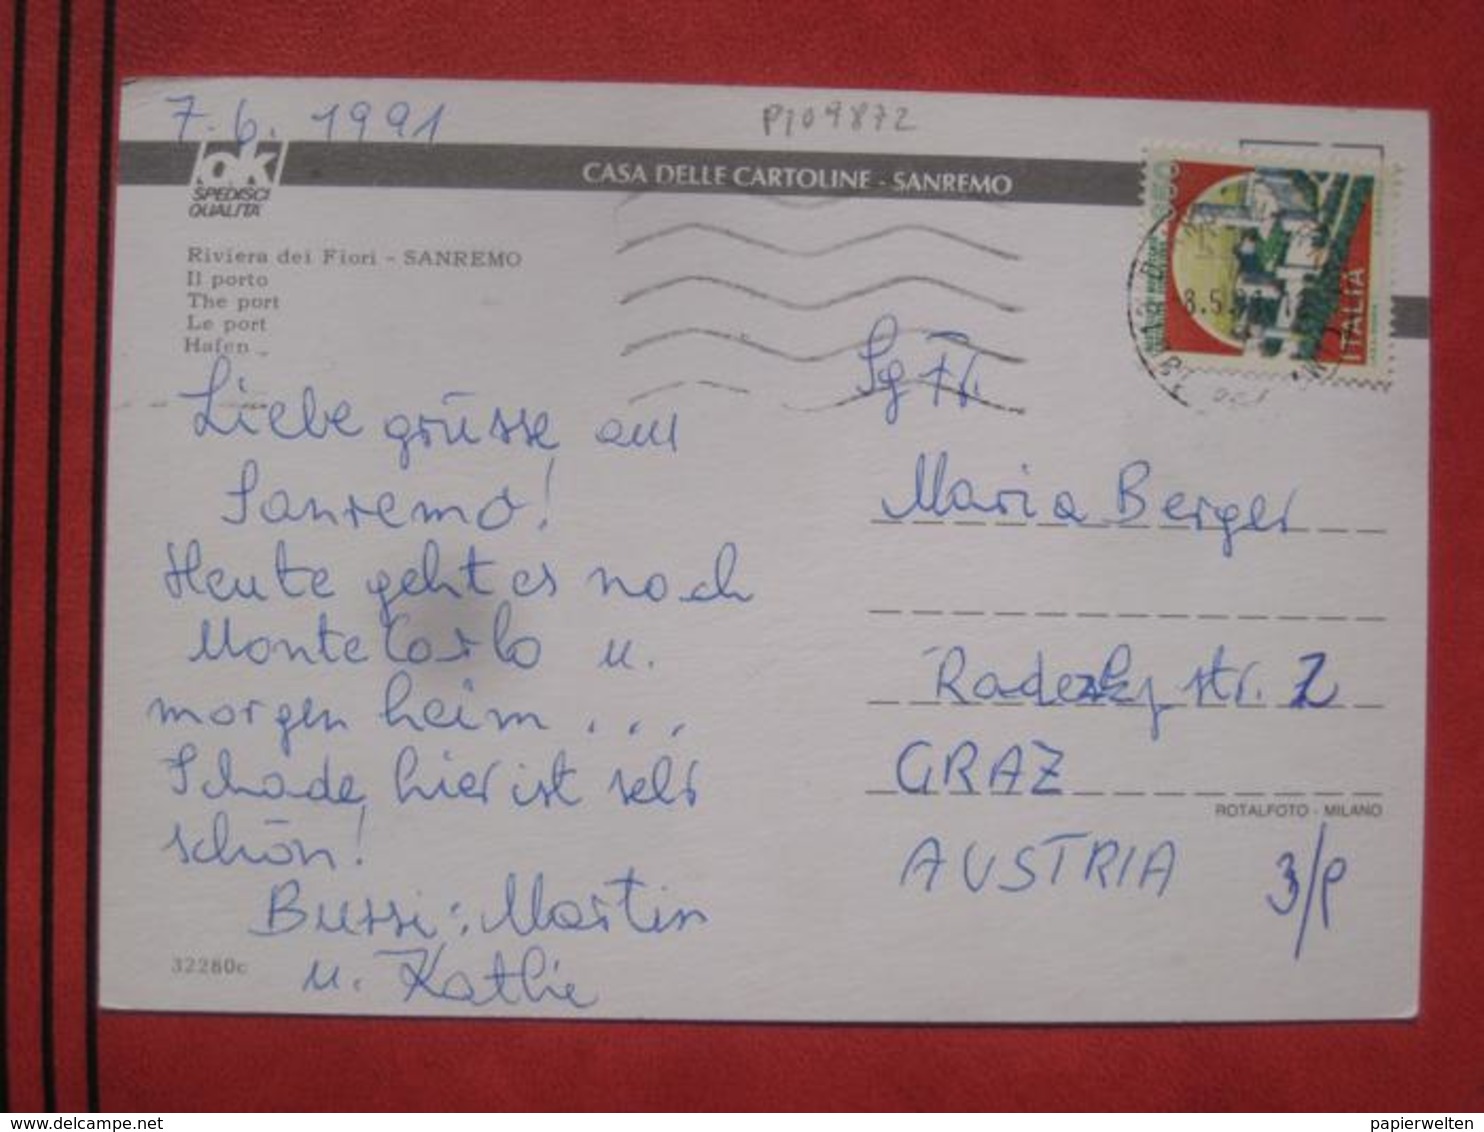 7.6. 1991
P109872
ok
SPEDISCI
QUALITA'
CASA DELLE CARTOLINE - SANREMO
Riviera dei Fiori - SANREMO
Il porto
The port
Le port
Hafen
ITALIA
8.5.91
Liebe grüsse aus
Sanremo!
Heute geht es noch
Monte Carlo u.
morgen heim . . .
Schade, hier ist sehr
schön!
Bussi: Martin
u. Kathie
32280c
Sg Fr.
Maria Berger
Radezky str. 2
GRAZ
ROTALFOTO - MILANO
AUSTRIA
3/P
www.delcampe.net
papierwelten